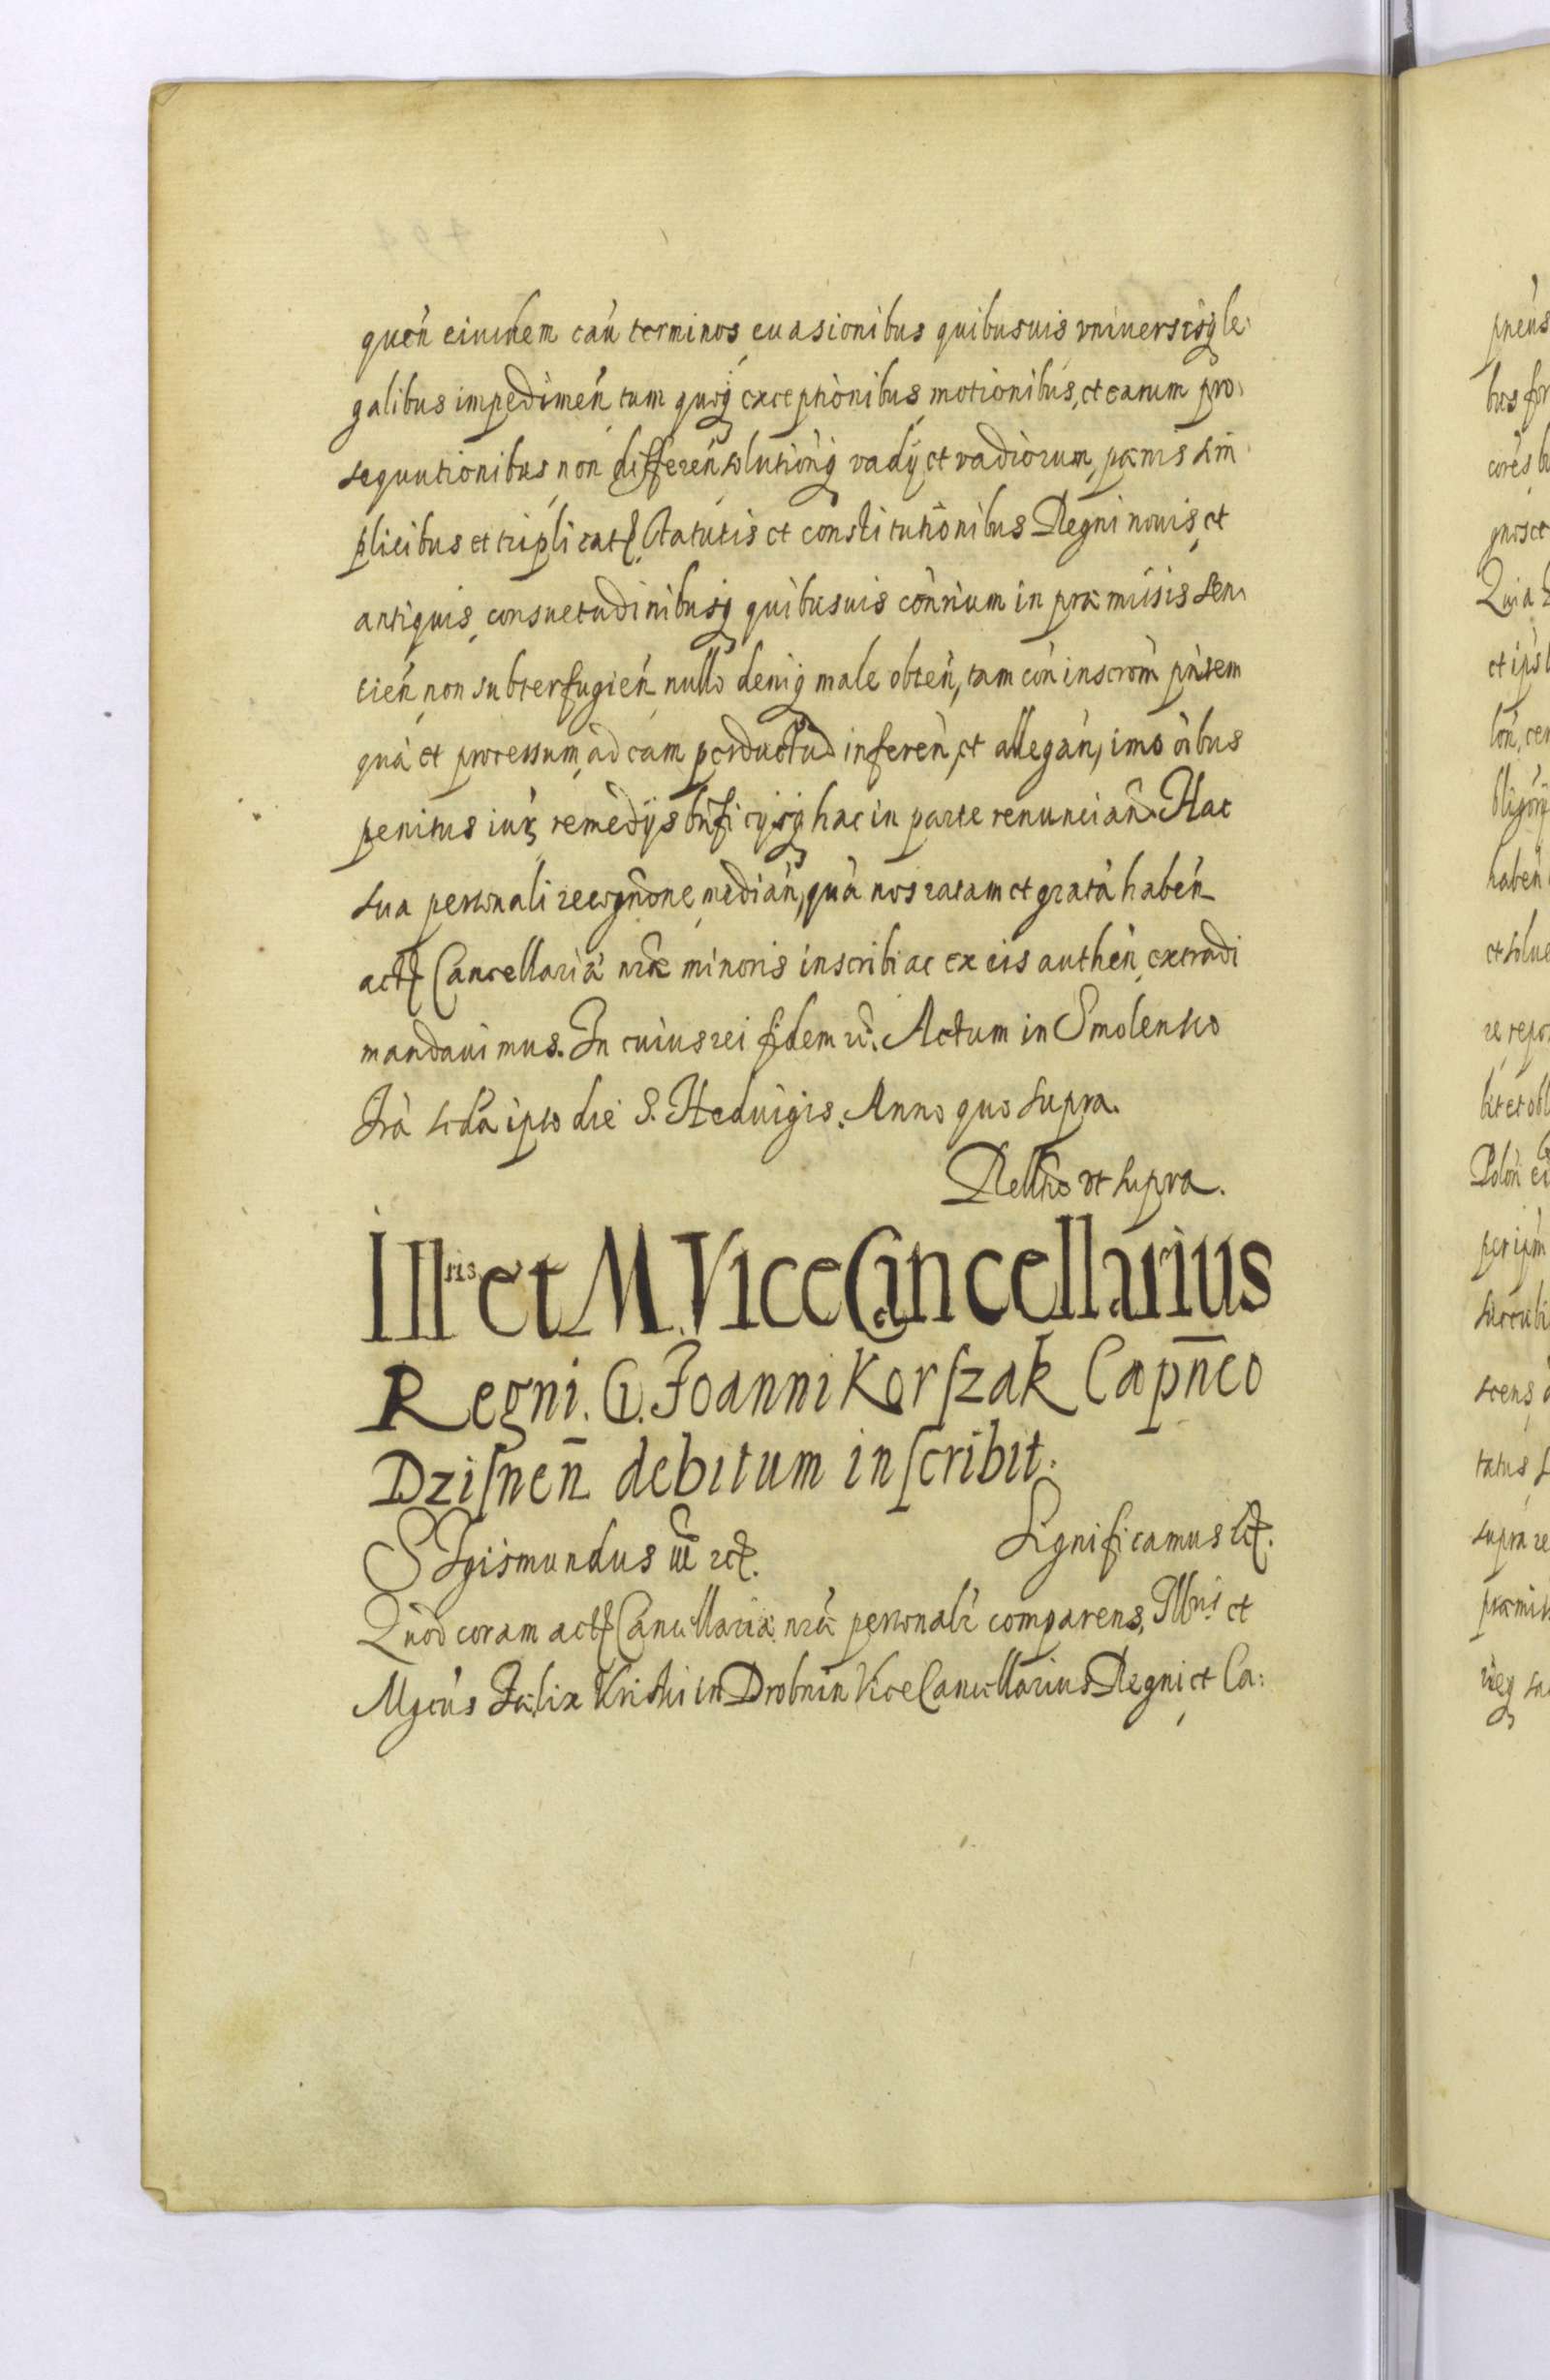 quen̄ eiusdem caū terminos, euasionibus quibusuis vniuersisq́ le:
galibus impedimen̄, tum quoq́ exceptionibus, motionibus, et earum pro:
sequutionibus, non differen̄, solutionēq́ vadij et vadiorum, pænis sim:
plicibus et triplicat, Statutis et constitutionibus Regni nouis, et
antiquis, consuetudinibusq́ quibusuis con̄rium in præmissis sen:
cien̄, non subterfugien̄, nullo deniq́ male obten̄, tam con̄ inscrōm pn̄tem
quā et processum, ad eam perductū inferen̄, et allegan̄, imo oībus
penitus iur remedijs bn̄ficijsq́ hac in parte renuncian̄. Hac
sua personali recogn̄one median̄, quā nos ratam et gratā haben̄
act Cancellariæ nr̄æ minoris inscribi ac ex eis authen̄ extradi
mandauimus. In cuius rei fidem rc̄. Actum in Smolensco
Fr̄a scd̄a ipso die S. Heduigis. Anno quo supra.
Rell̄io vt supra.
Ill ris et M. ViceCancellarius
Regni. G. Joanni Korszak Capn̄eo
Dzisnen̄ debitum inscribit.
Sigismundus III rc̄. Significamus rc̄.
Quod coram act Cancellariæ nr̄æ personalr̄ comparens, Illris et
Mgcūs Fælix Kriski in Drobnin ViceCancellarius Regni, et Ca: